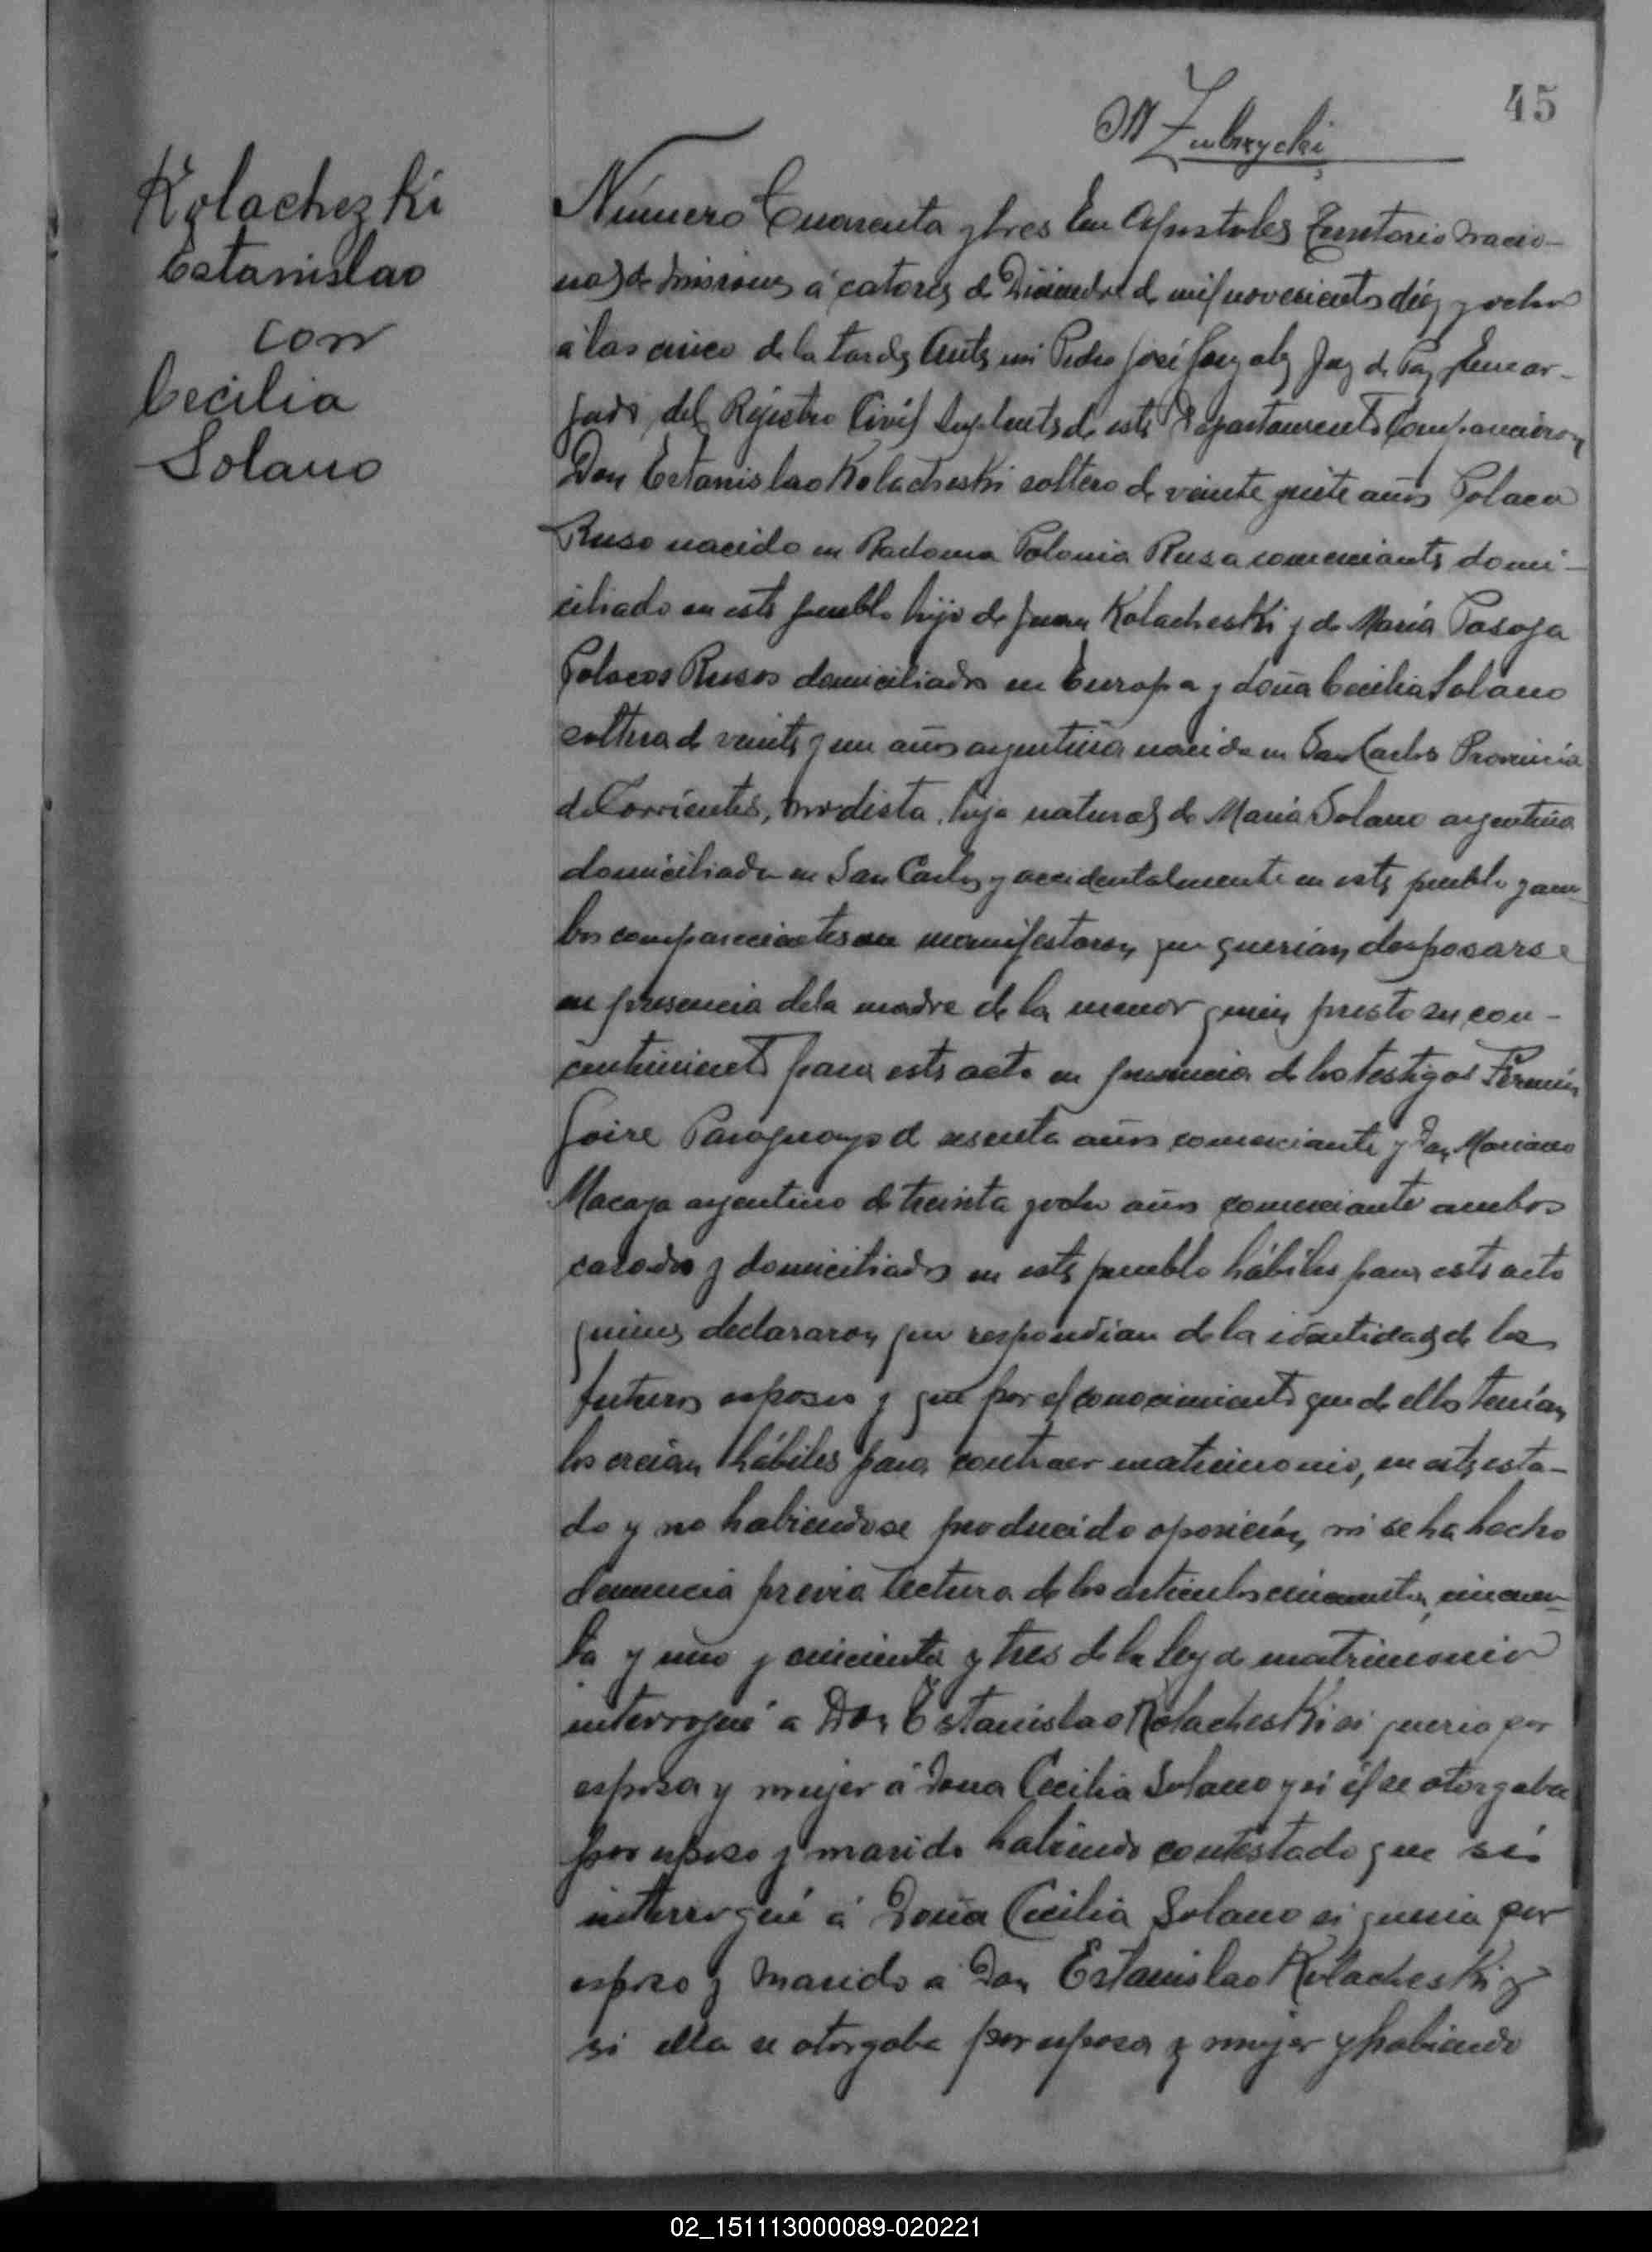 45
M Zubrzycki
Kolachezki
Estanislao
con
Cecilia
Solano
Número Cuarenta y tres En Apostoles Territorio Nacio-
nal de Misiones á catorce de Diciembre de mil novecientos diez y ocho
á las cinco de la tarde Ante mi Pedro José Gonzalez Juez de Paz Encar-
gado del Rejistro Civil Suplente de este Departamento Comparecieron
Don Estanislao Kolacheski soltero de veinte y siete años Polaco
Ruso nacido en Radoma Polonia Rusa comerciante domi-
ciliado en este pueblo hijo de Juan Kolacheski y de María
Polacos Rusos domiciliados en Europa y doña Cecilia Solano
soltera de veinte y un años argentina nacida en San Carlos Provincia
de Corrientes, modista, hija natural de María Solano argentina
domiciliada en San Carlos y accidentalmente en este pueblo y am-
bos comparecientes manifestaron que querían desposarse
en presencia de la madre de la menor quien presto su con-
centimiento para este acto en presencia de los testigos Fermín
Paraguayo de sesenta años comerciante y Don Mariano
Macaya argentino de treinta y ocho años comerciante ambos
casados y domiciliados en este pueblo hábiles para este acto
quienes declararon que respondían de la identidad de los
futuros esposos y que por el conocimiento que de ellos tenían
los creían hábiles para contraer matrimonio, en este esta-
do y no habiendose producido oposición, ni se ha hecho
denuncia previa lectura de los artículos cincuenta, cincuen-
ta y uno y cincuenta y tres de la ley de matrimonio
interrogué a Don Estanislao Kolacheski si queria por
esposa y mujer á Doña Cecilia Solano y si él se otorgaba
por esposo y marido habiendo contestado que sí
interrogué á Doña Cecilia Solano si queria por
esposo y marido a Don Estanislao Kolacheski y
si ella se otorgaba por esposa y mujer y habiendo
02_151113000089-020221